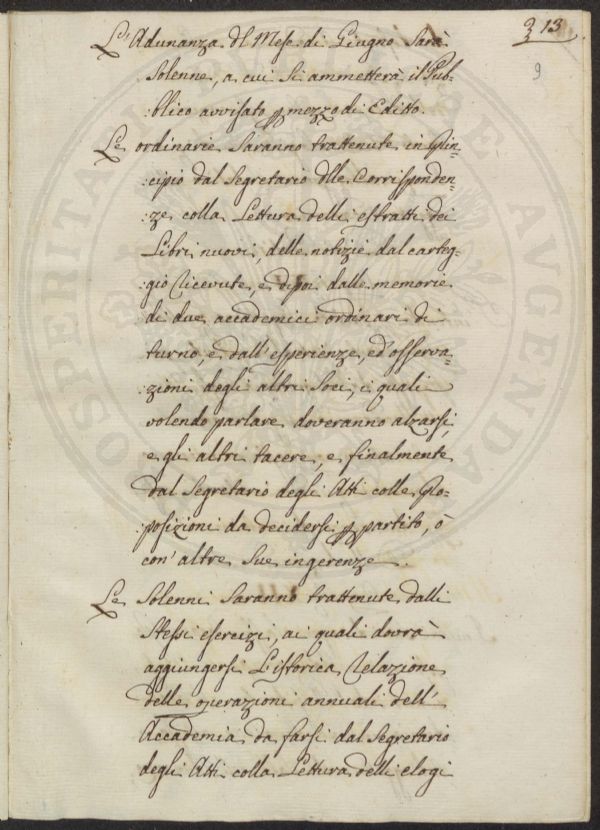 313
9
L'Adunanza del Mese di Giugno Sarà
Solenne, a cui Si ammetterà il Pub=
:blico avvisato p mezzo di Editto.
Le ordinarie Saranno trattenute in Prin=
:cipio dal Segretario dlle Corrisponden=
:ze colla Lettura delli estratti dei
Libri nuovi, delle notizie dal carteg=
gio ricevute, e dipoi dalle memorie
di due accademici ordinari di
turno, e dall'esperienze, ed'osserva=
:zioni degli altri Soci, i quali
volendo parlare doveranno alzarsi,
e gli altri tacere, e finalmente
dal Segretario degli Atti colle Pro=
:posizioni da decidersi p partito, ò
con'altre Sue ingerenze.
Le Solenni Saranno trattenute dalli
Stessi esercizi, ai quali dovrà
aggiungersi L'istorica Relazione
delle operazioni annuali dell'
Accademia da farsi dal Segretario
degli Atti colla Lettura delli elogi
PROSPERITATI AUGENDAE